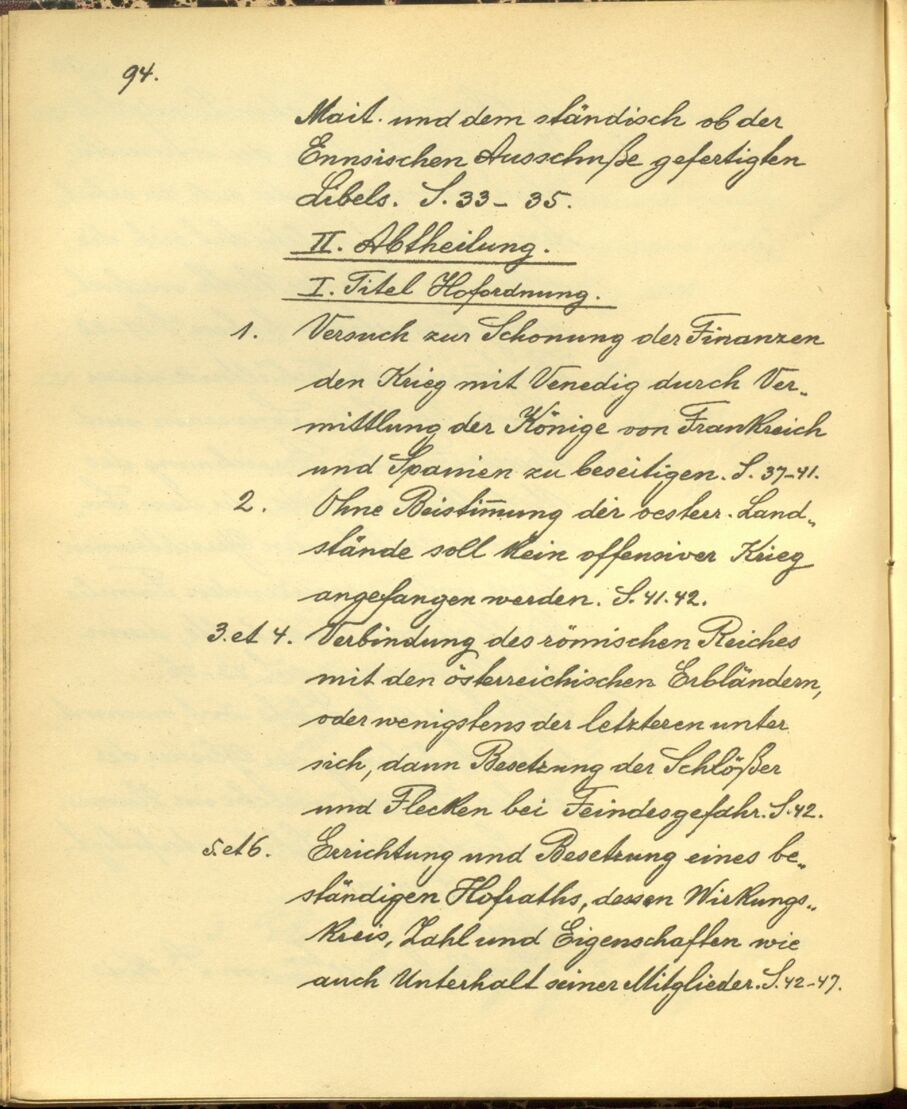 94.
Mait. und dem ständisch ob der
Ennsischen Ausschuße gefertigten
Libels. S. 33 - 35.
II. Abtheilung.
I. Titel Hofordnung.
1. Versuch zur Schonung der Finanzen
den Krieg mit Venedig durch Ver„
mittlung der Könige von Frankreich
und Spanien zu beseitigen. S. 37-41.
2. Ohne Beistim̄ung der oesterr. Land„
stände soll kein offensiver Krieg
angefangen werden. S. 41.42.
3. et 4. Verbindung des römischen Reiches
mit den österreichischen Erbländern,
oder wenigstens der letzteren unter
sich, dann Besetzung der Schlößer
und Flecken bei Feindesgefahr. S. 42.
5. et 6. Errichtung und Besetzung eines be„
ständigen Hofraths, dessen Wirkungs„
kreis, Zahl und Eigenschaften wie
auch Unterhalt seiner Mitglieder. S. 42-47.